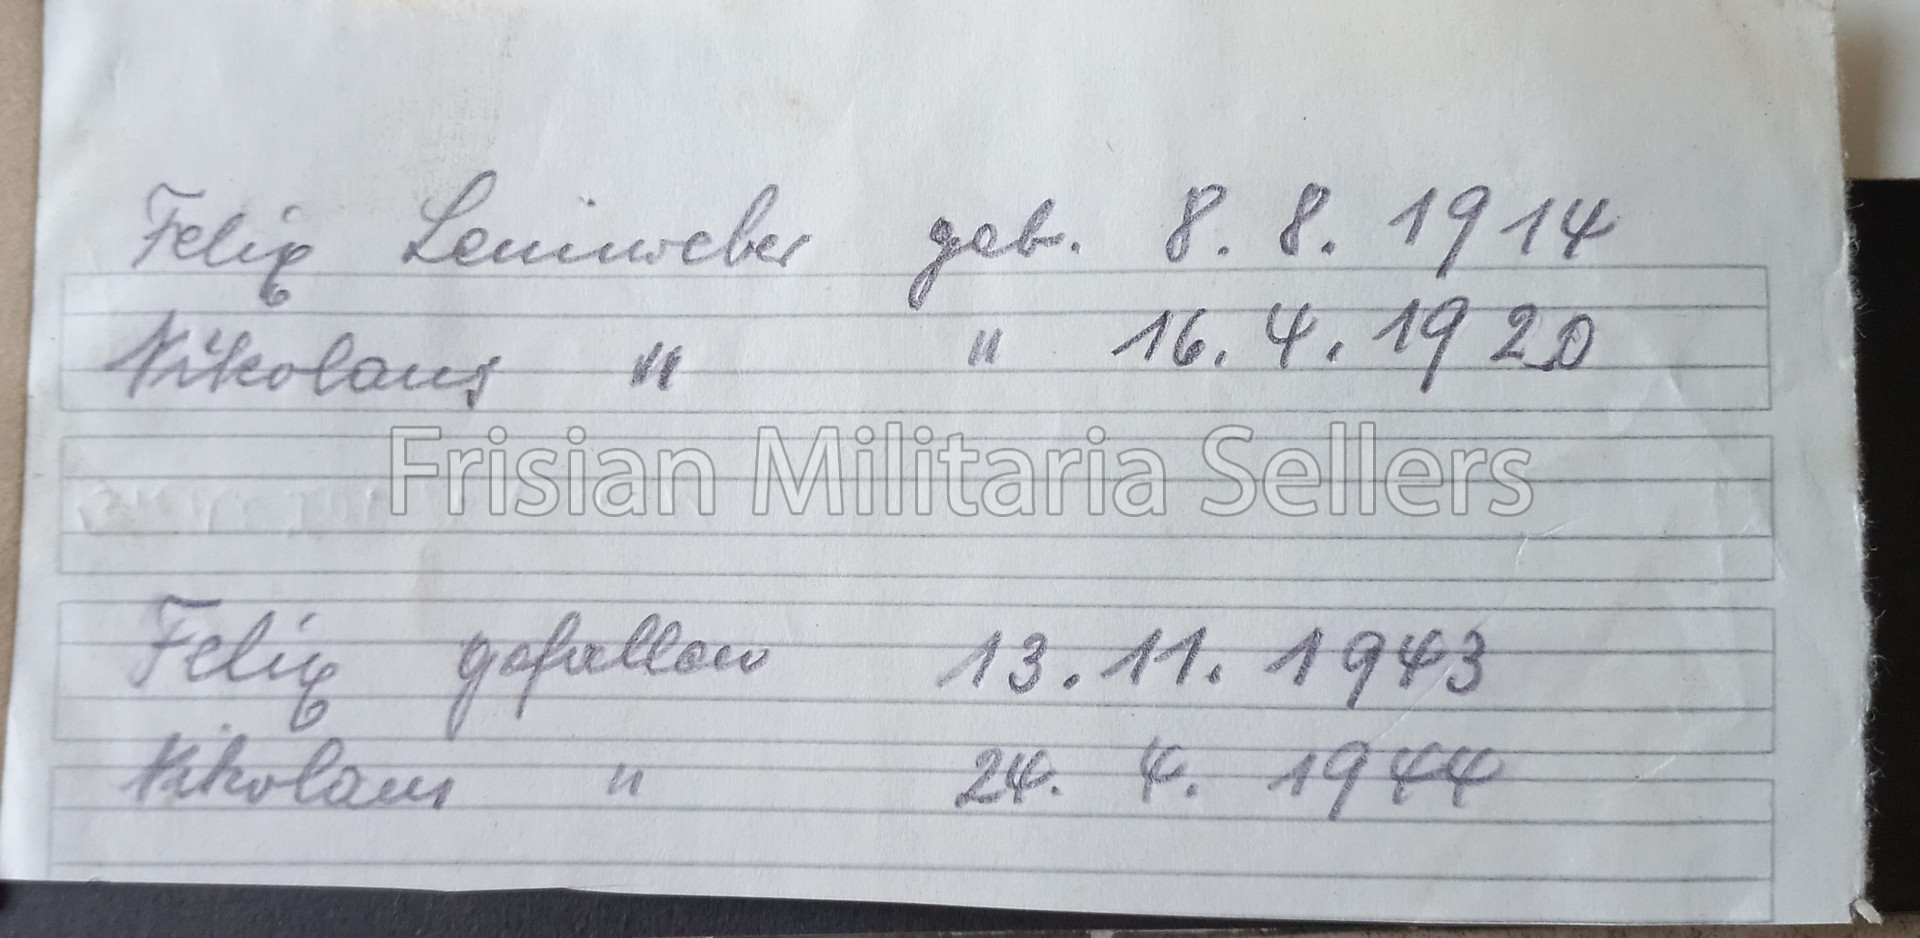 Felix Leinweber geb. 8. 8. 1914
Nikolaus " " 16. 4. 1920
Frisian Militaria Sellers
Felix gefallen 13. 11. 1943
Nikolaus " 24. 4. 1944